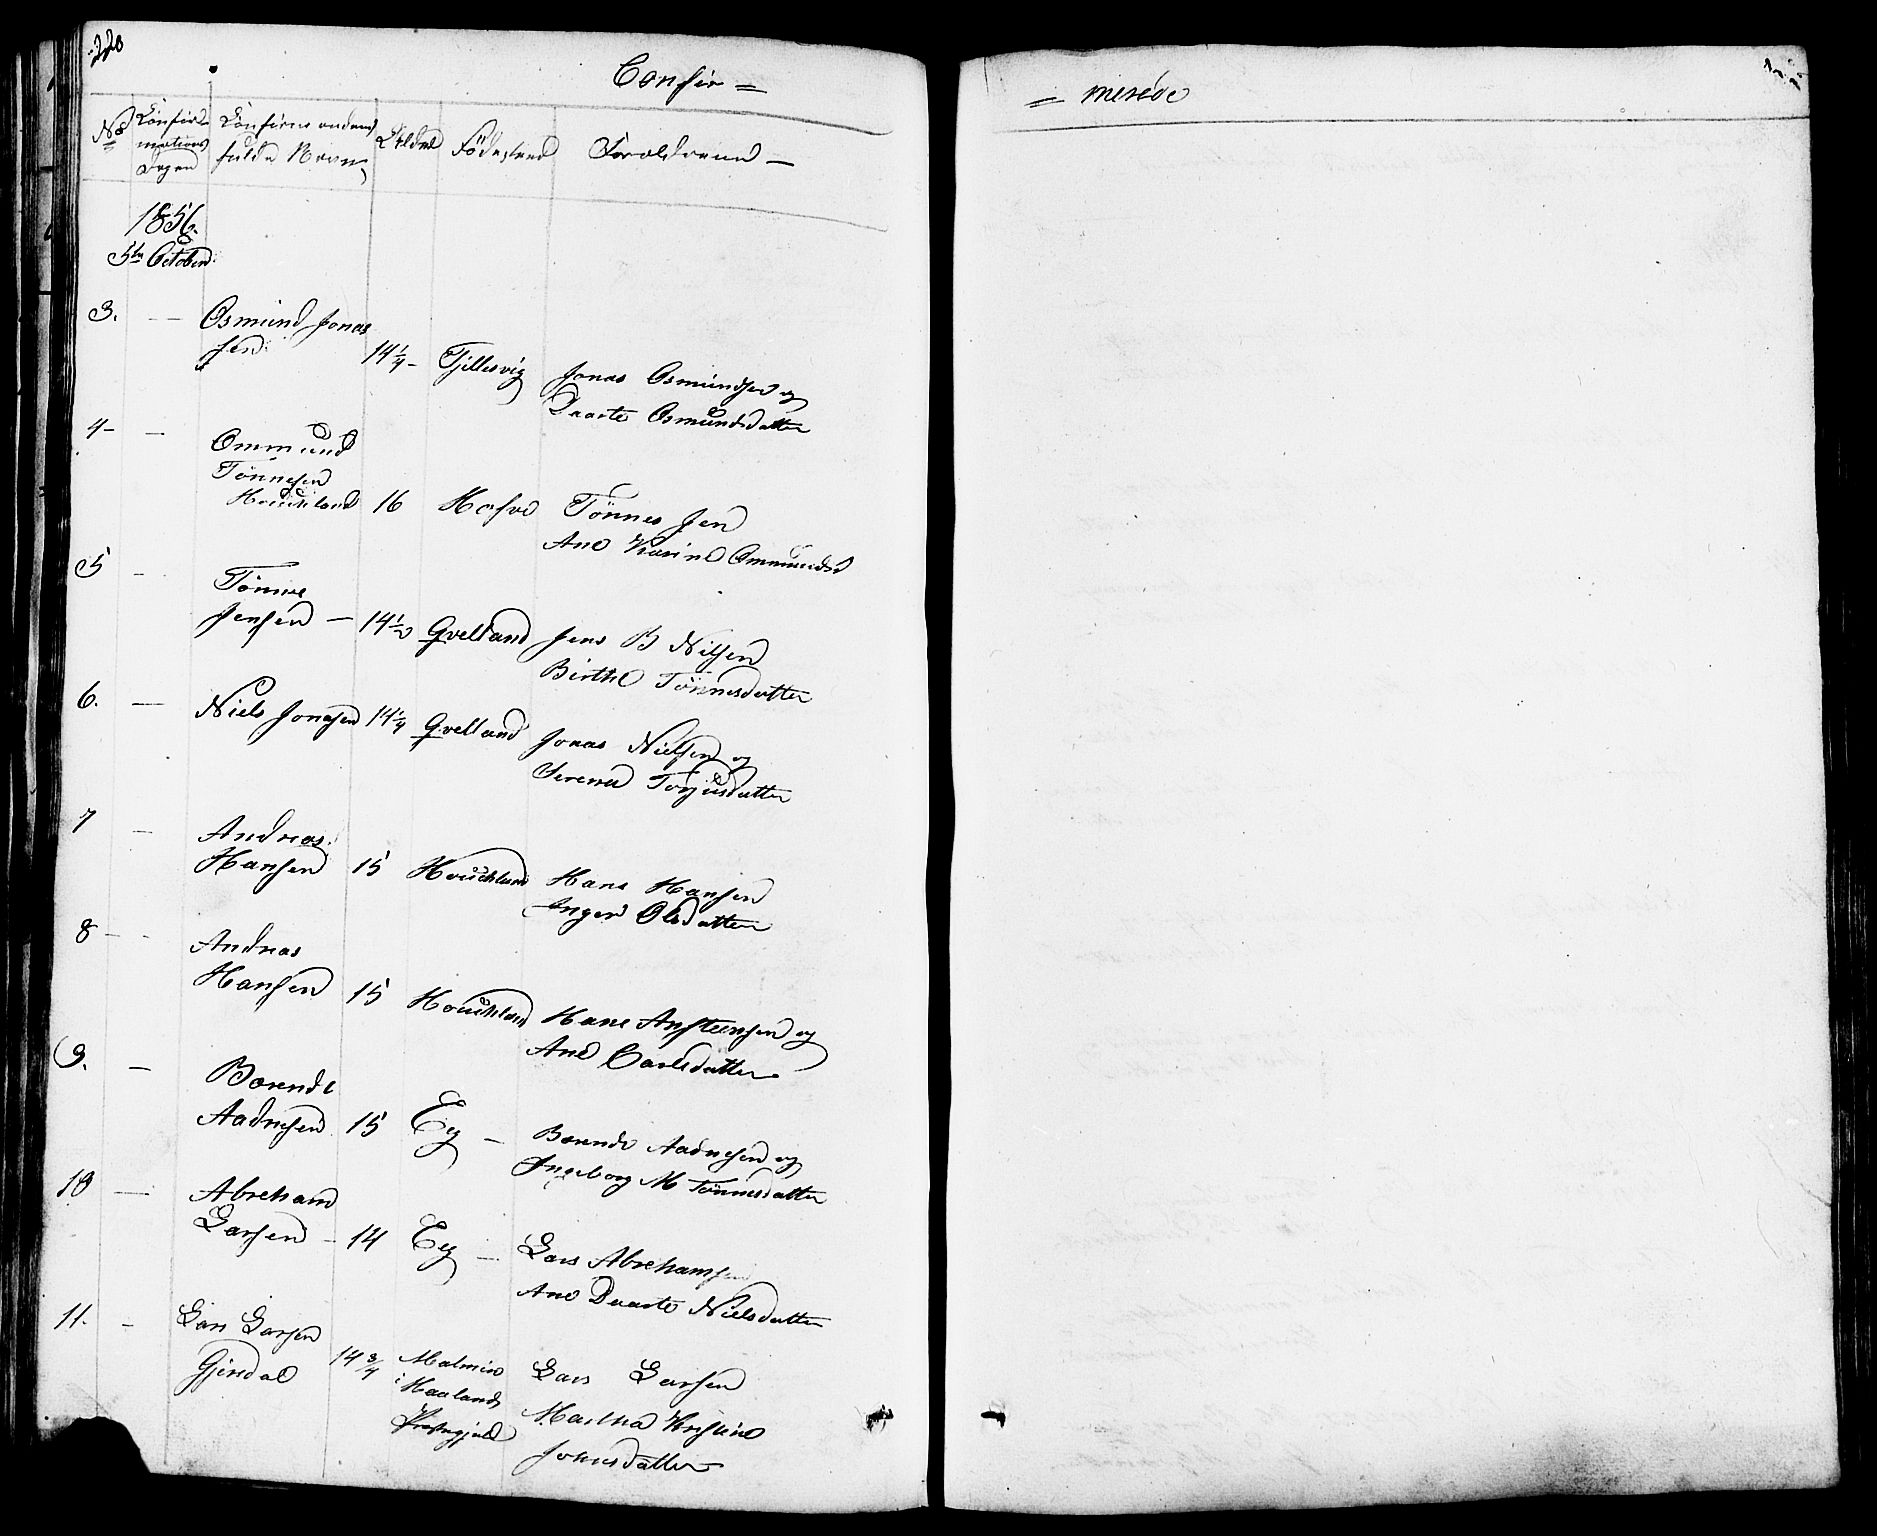 220
Confir =
= merede
No Confir- Confirmandens Alder Fødested Forældrene —
mations fulde Navn
Dagen
1856.
5te October
3. — Osmund Jonas
sen 14 1/4 - Tjillesvig Jonas Osmundsen og
Daarte Osmundsdatter
4 - — Ommund
Tønnesen
Houckland 16 Hafsø Tønnes Jen
Ane Karine Ommundsd
5 - Tønnes
Jensen — 14 1/2 Qvelland Jens B Nilsen
Birthe Tønnesdatter
6. — Niels Jonasen 14 1/4 Qvelland Jonas Nielsen og
Serena Torjusdatter
7 — Andreas
Hansen 15 Houckland Hans Hansen
Inger Olsdatter
8 - - Andreas
Hansen 15 Houckland Hans Ansteensen og
Ane Carlsdatter
9. — Berendt
Aadnesen 15 Eg — Berendt Aadnesen og
Ingeborg M Tønnesdatter
10 — Abreham
Larsen — 14 Eg — Lars Abrehamsen
Ane Daarte Nielsdatter
11. - Lars Larsen
Gjendal 14 3/4 Malmin Lars Larsen
i Haalands Martha Kirstine
Præstegjeld Johnsdatter